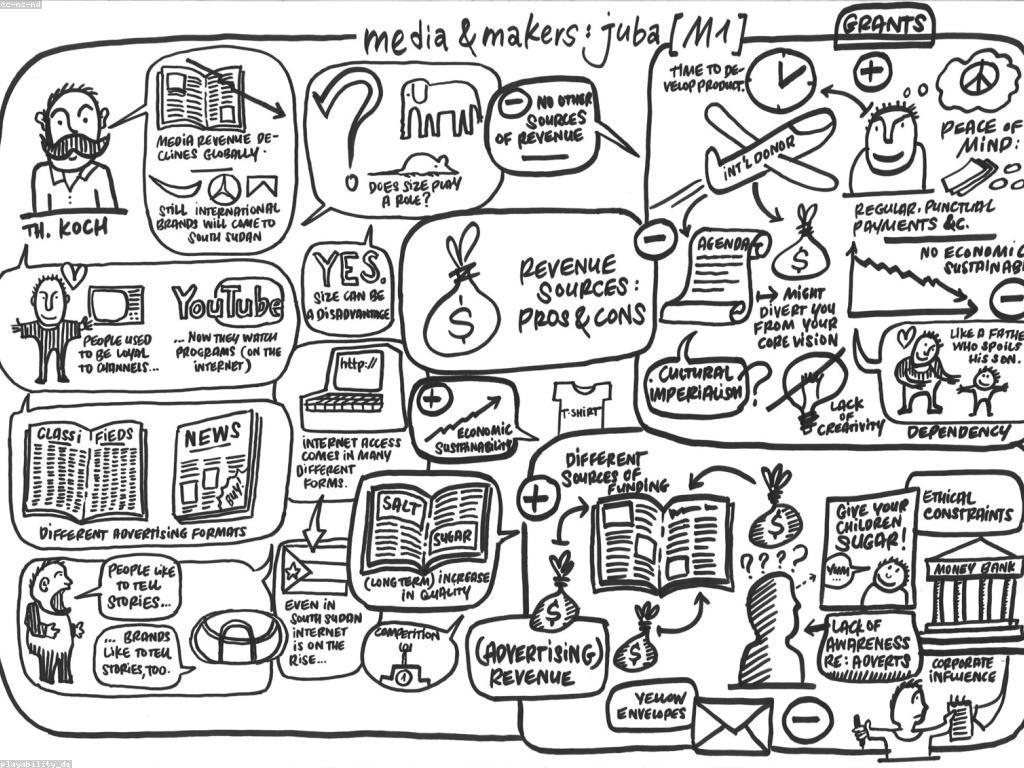 cc-nc-nd
media & makers: juba [M1]
TH. KOCH
MEDIA REVENUE DE-
CLINES GLOBALLY.
STILL INTERNATIONAL
BRANDS WILL COME TO
SOUTH SUDAN
?
DOES SIZE PLAY
A ROLE?
- NO OTHER
SOURCES
OF REVENUE
YES.
SIZE CAN BE
A DISADVANTAGE
PEOPLE USED
TO BE LOYAL
TO CHANNELS...
YouTube
... NOW THEY WATCH
PROGRAMS (ON THE
INTERNET)
http://
INTERNET ACCESS
COMES IN MANY
DIFFERENT
FORMS.
CLASSIFIEDS
NEWS
BUY!
DIFFERENT ADVERTISING FORMATS
PEOPLE LIKE
TO TELL
STORIES...
... BRANDS
LIKE TO TELL
STORIES, TOO.
EVEN IN
SOUTH SUDAN
INTERNET
IS ON THE
RISE...
$
REVENUE
SOURCES:
PROS & CONS
+
ECONOMIC
SUSTAINABILITY
T-SHIRT
SALT
SUGAR
(LONG TERM) INCREASE
IN QUALITY
COMPETITION
1
GRANTS
TIME TO DE-
VELOP PRODUCT.
+
INT'L DONOR
PEACE OF
MIND:
REGULAR, PUNCTUAL
PAYMENTS &C.
-
AGENDA
$
MIGHT
DIVERT YOU
FROM YOUR
CORE VISION
NO ECONOMIC
SUSTAINABI
-
CULTURAL
IMPERIALISM
?
LACK
OF
CREATIVITY
LIKE A FATHE
WHO SPOILS
HIS SON.
DEPENDENCY
+
DIFFERENT
SOURCES OF
FUNDING
$
$
$
(ADVERTISING)
REVENUE
? ? ? ?
GIVE YOUR
CHILDREN
SUGAR!
YUM...
LACK OF
AWARENESS
RE: ADVERTS
ETHICAL
CONSTRAINTS
MONEY BANK
CORPORATE
INFLUENCE
YELLOW
ENVELOPES
-
playability_de